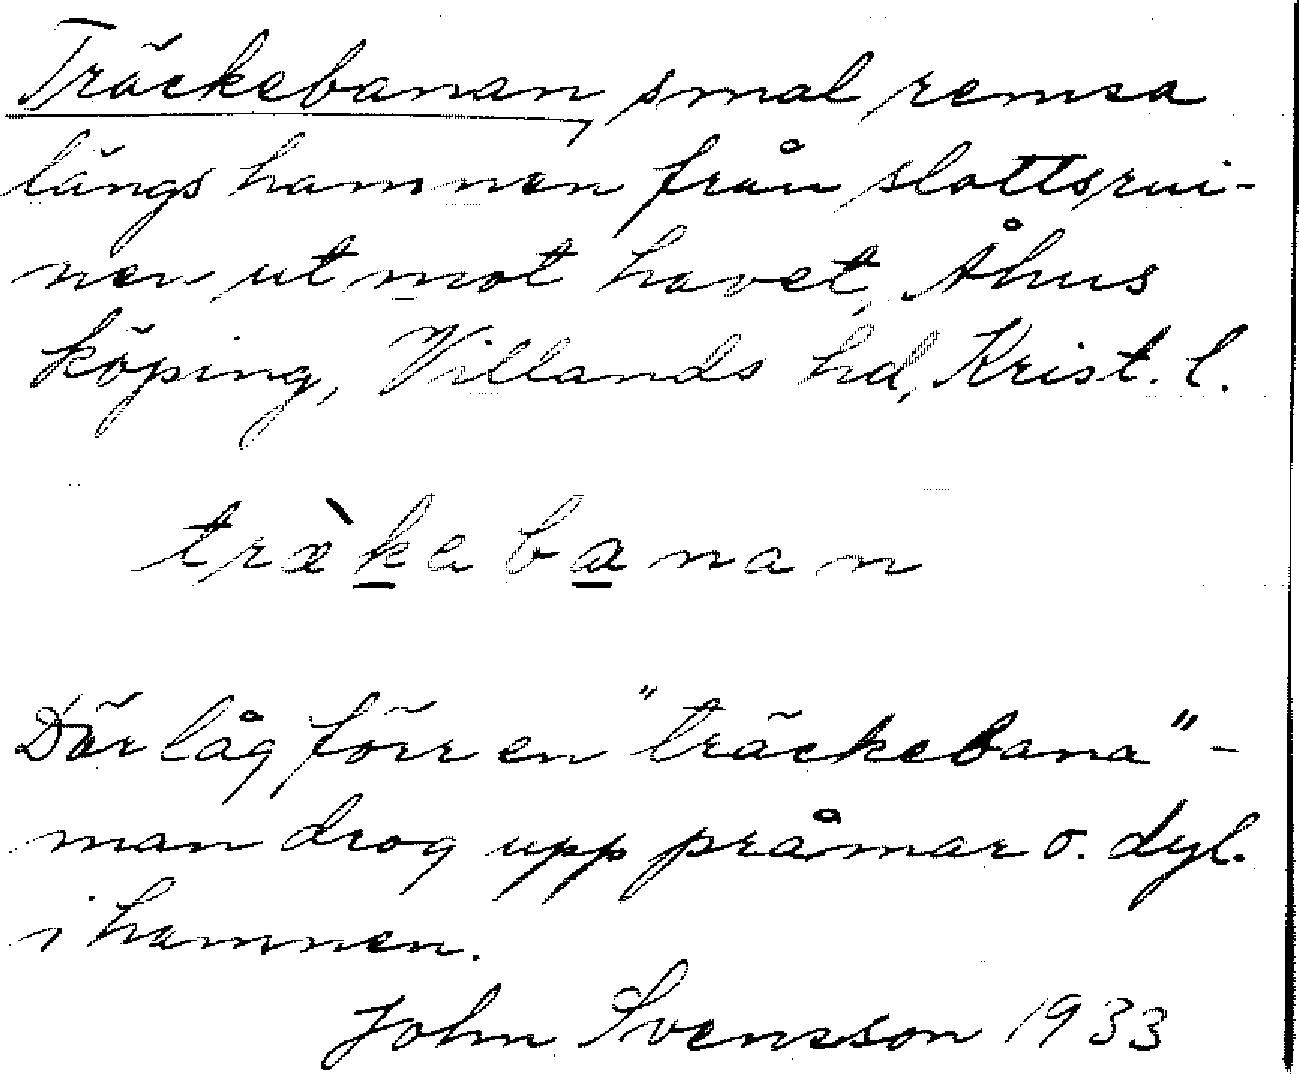 Träckebanan, smal remsa
längs hamnen från slottsrui-
nen ut mot havet, Åhus
köping, Villands hd, Krist. l.
træ̀k̲eba̲nan
Där låg förr en "träckebana" -
man drog upp pråmar o. dyl.
i hamnen.
John Svensson 1933